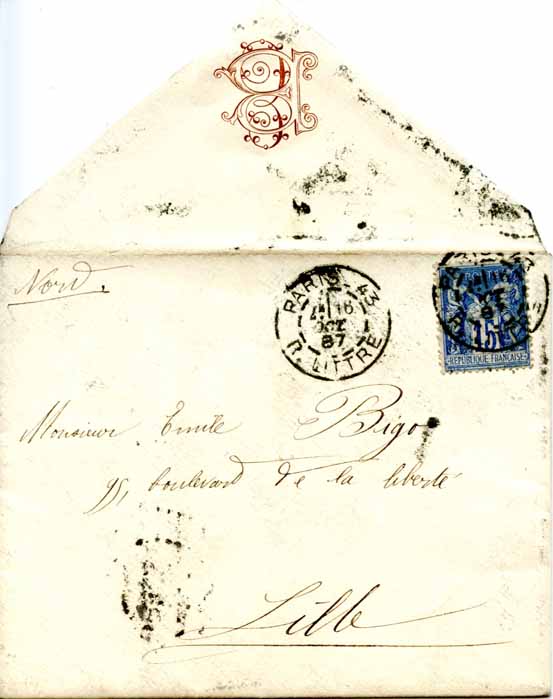 Nord.
PARIS 43
16
OCT
87
R. LITTRE
15
REPUBLIQUE FRANÇAISE
Monsieur Emile Bigo
95, boulevard de la liberté
Lille